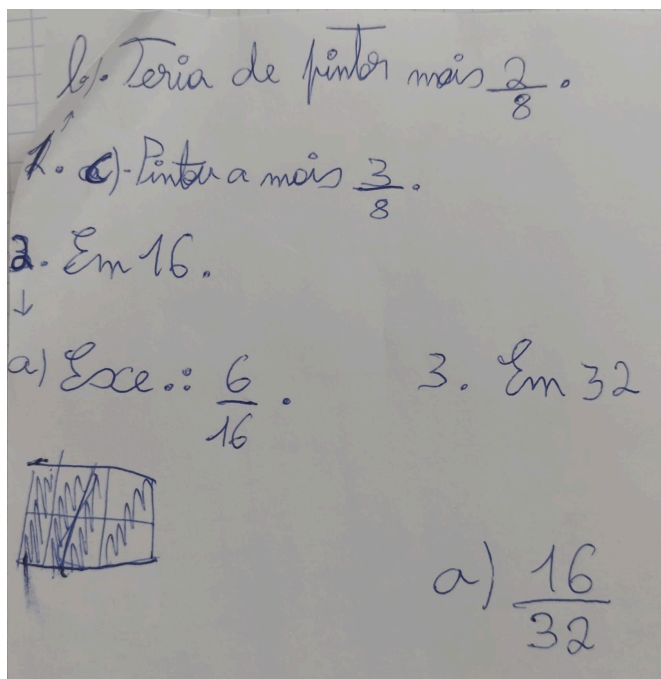 b). Teria de pintar mais 2/8.
1. c)-Pintou a mais 3/8.
2. Em 16.
a) Exce.: 6/16.
3. Em 32
a) 16/32